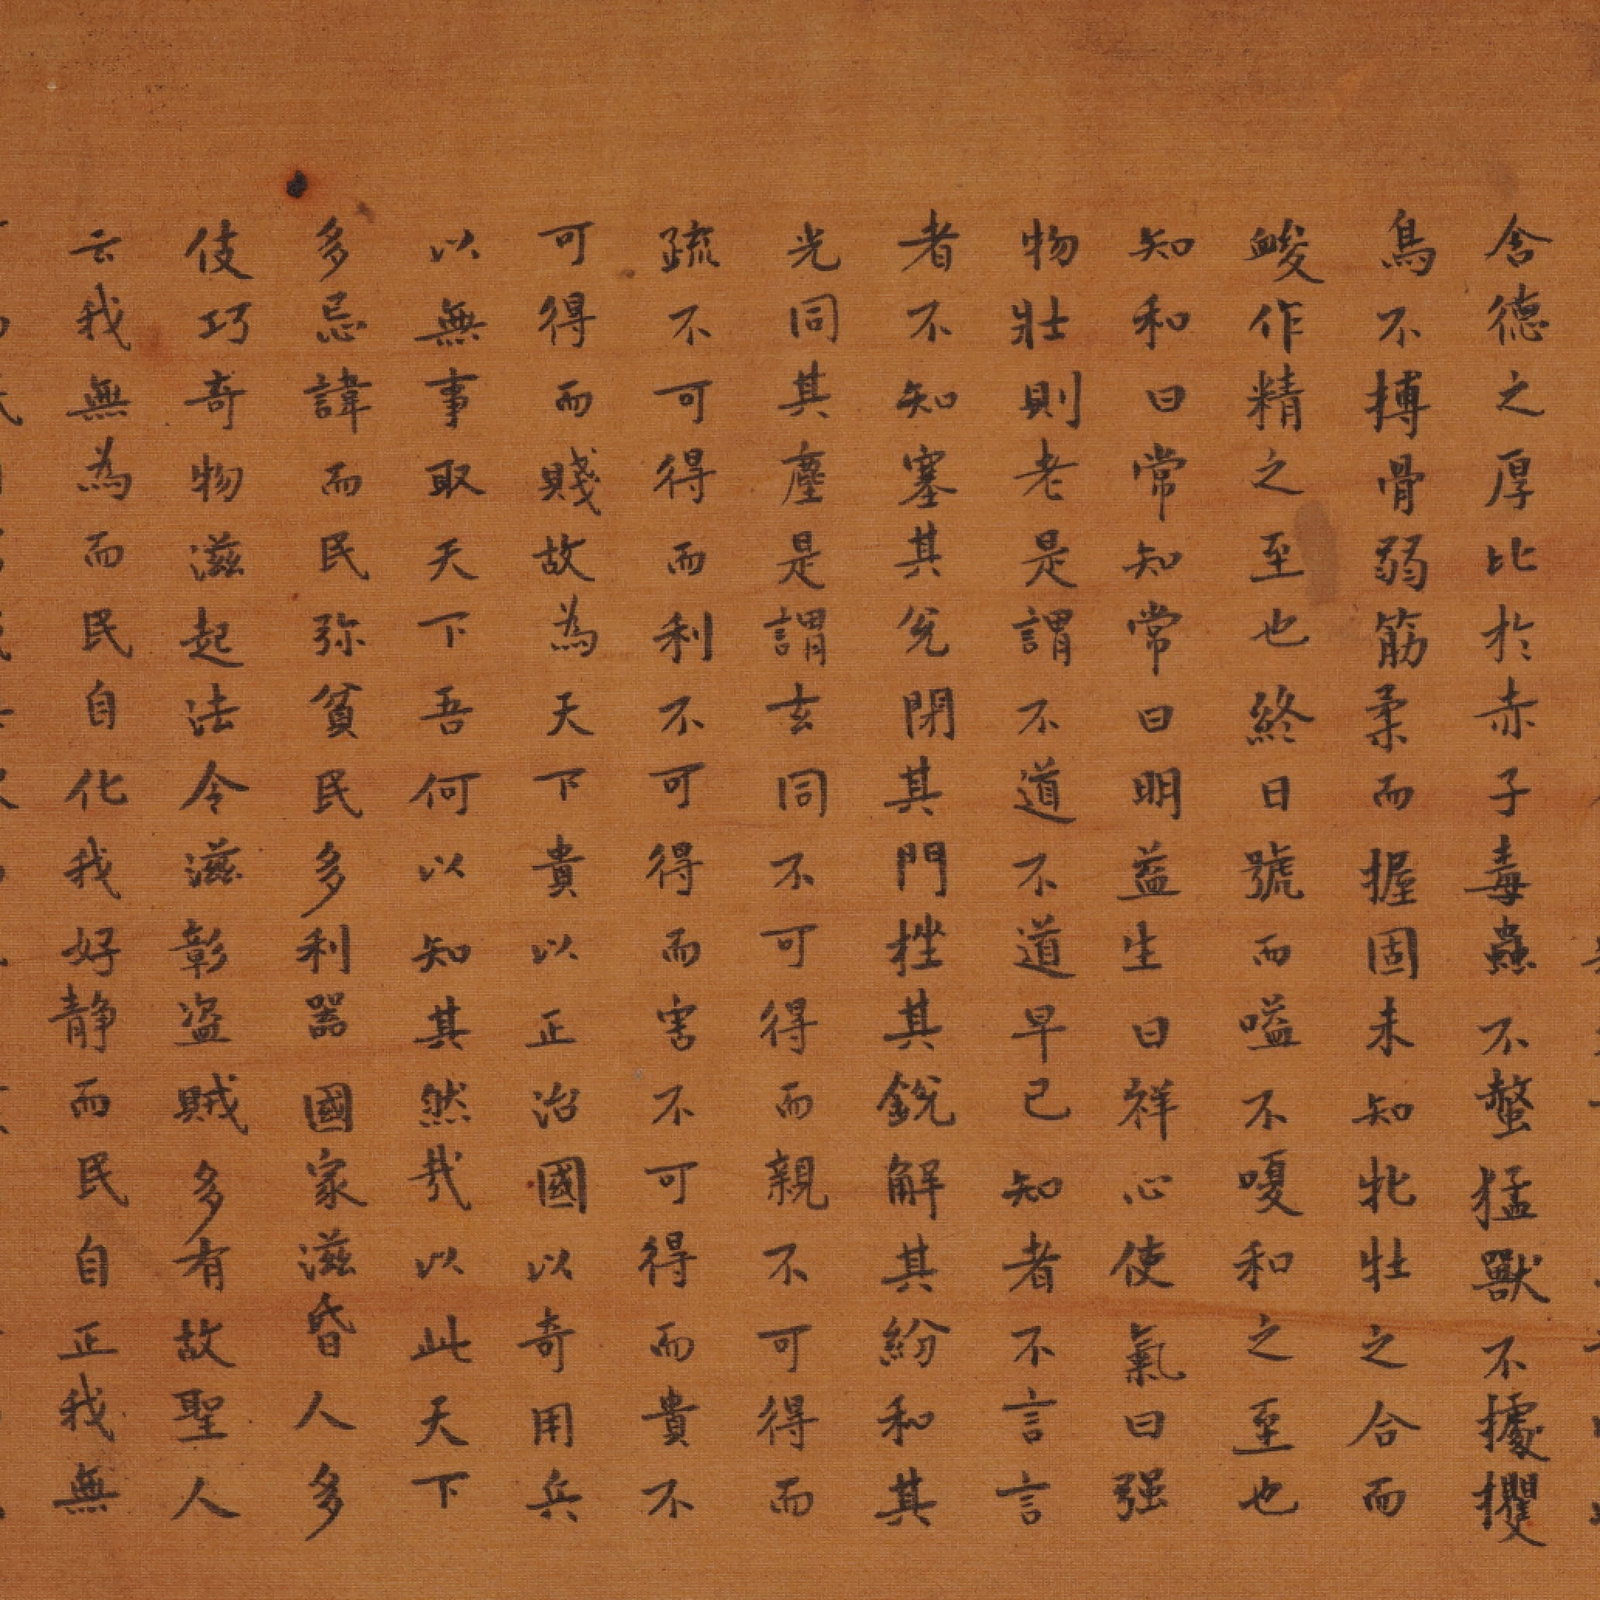 含德之厚比於赤子毒蟲不螫猛獸不據攫
鳥不搏骨弱筋柔而握固未知牝牡之合而
䘒作精之至也終日號而嗌不嗄和之至也
知和曰常知常曰明益生曰祥心使氣曰强
物壯則老是謂不道不道早已知者不言言
者不知塞其兊閉其門挫其銳解其紛和其
光同其塵是謂玄同不可得而親不可得而
疏不可得而利不可得而害不可得而貴不
可得而賤故為天下貴以正治國以奇用兵
以無事取天下吾何以知其然哉以此天下
多忌諱而民弥貧民多利器國家滋昏人多
伎巧奇物滋起法令滋彰盗賊多有故聖人
云我無為而民自化我好静而民自正我無